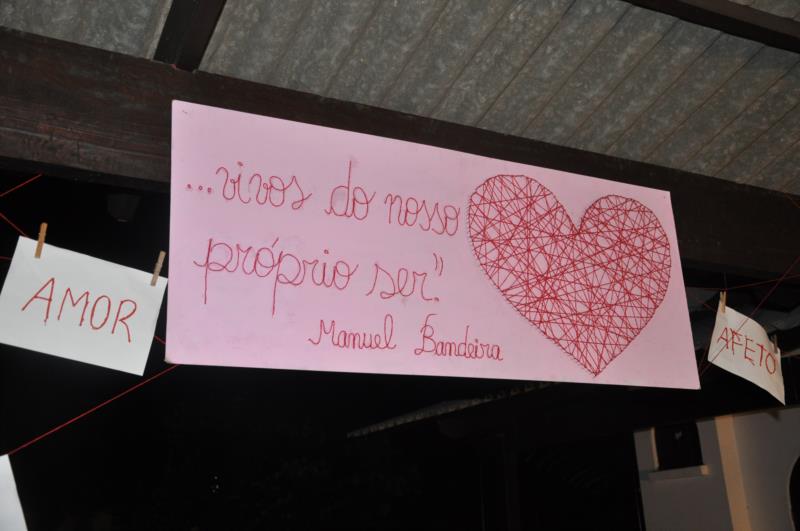 ...vivos do nosso
próprio ser".
Manuel Bandeira
AMOR
AFETO